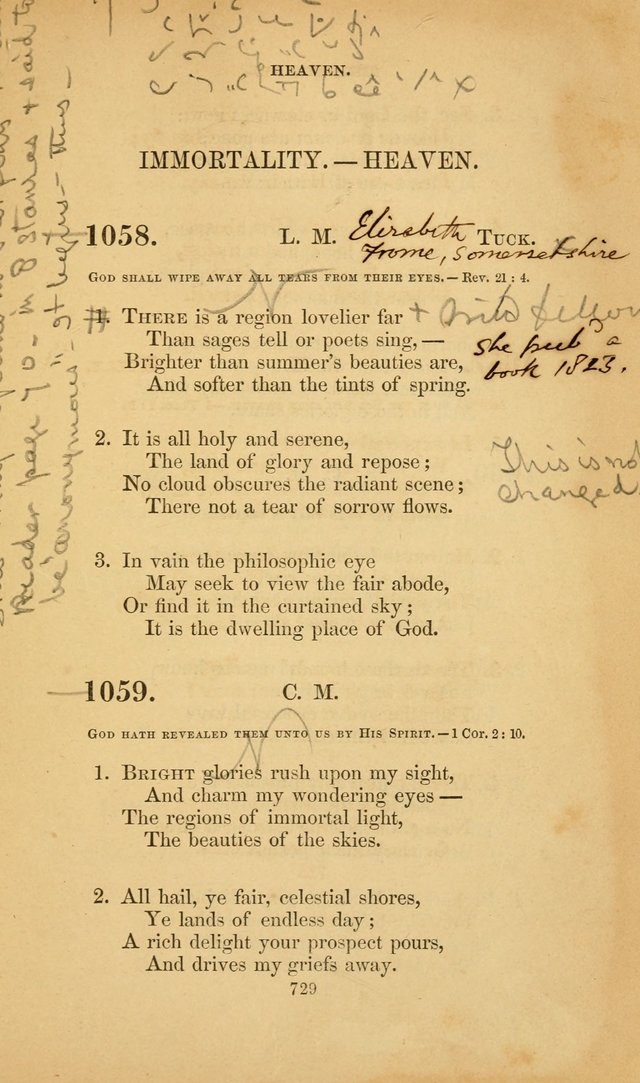 HEAVEN.
IMMORTALITY. — HEAVEN.
1058. L. M. Elizabeth TUCK.
Frome, Somersetshire
GOD SHALL WIPE AWAY ALL TEARS FROM THEIR EYES. — REV. 21 : 4.
1. THERE is a region lovelier far +
Than sages tell or poets sing, —
she pub a
Brighter than summer's beauties are,
book 1823.
And softer than the tints of spring.
2. It is all holy and serene,
The land of glory and repose ;
This is not
No cloud obscures the radiant scene ;
changed
There not a tear of sorrow flows.
3. In vain the philosophic eye
May seek to view the fair abode,
Or find it in the curtained sky ;
It is the dwelling place of God.
1059. C. M.
GOD HATH REVEALED THEM UNTO US BY HIS SPIRIT. — 1 COR. 2 : 10.
1. BRIGHT glories rush upon my sight,
And charm my wondering eyes —
The regions of immortal light,
The beauties of the skies.
2. All hail, ye fair, celestial shores,
Ye lands of endless day ;
A rich delight your prospect pours,
And drives my griefs away.
729